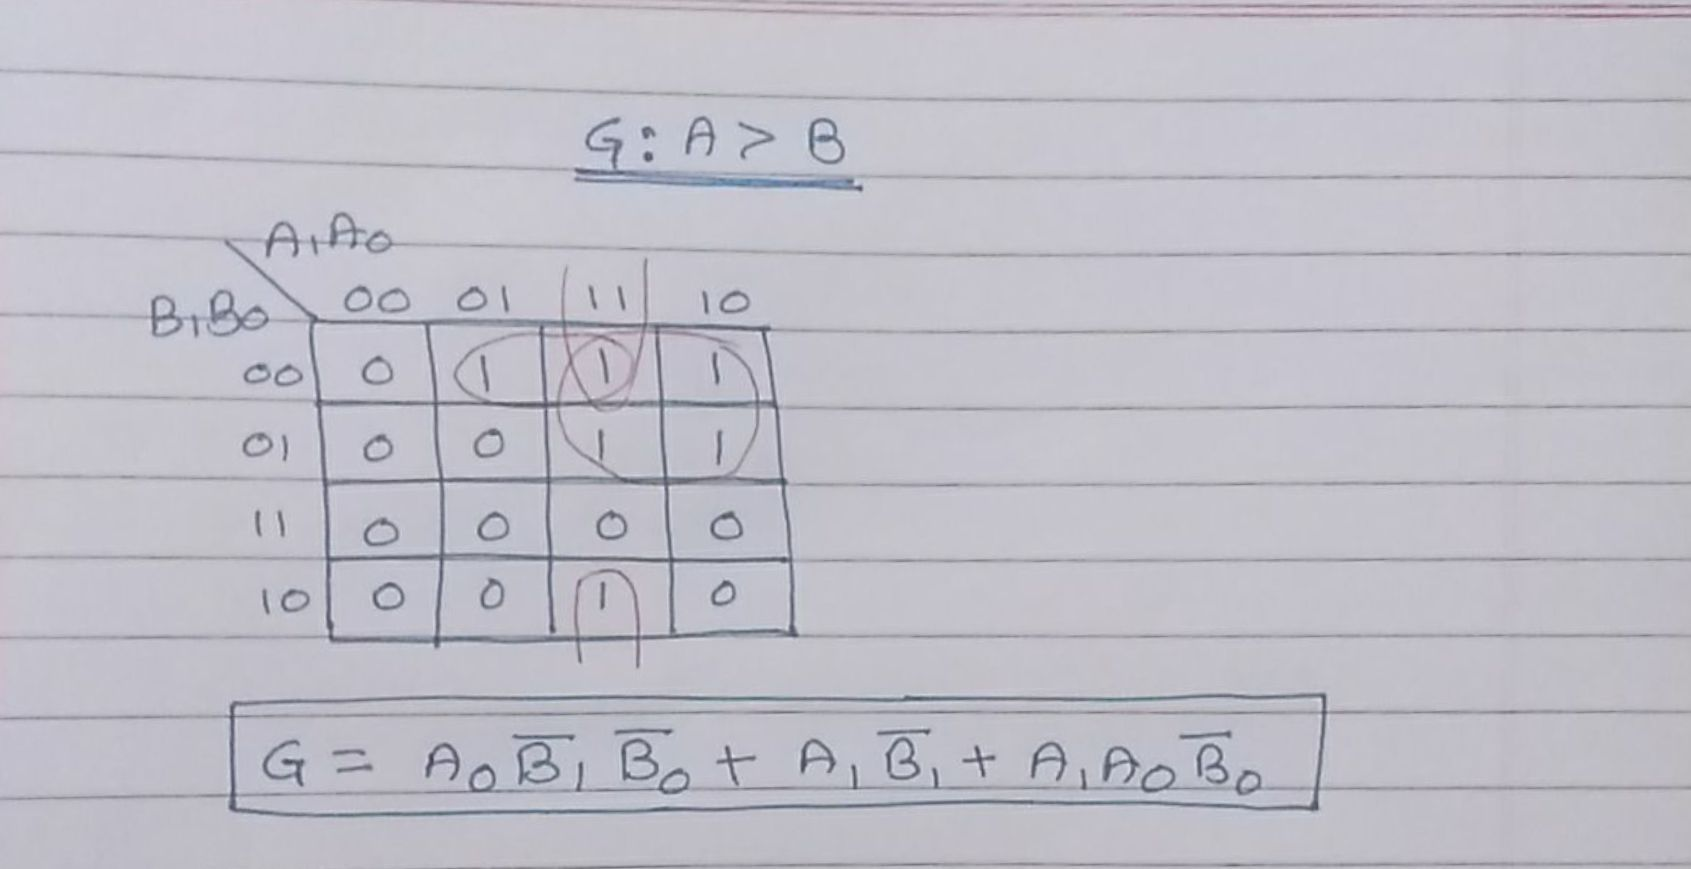 G: A > B
A₁A₀
B₁B₀ 00 01 11 10
00 0 1 1 1
01 0 0 1 1
11 0 0 0 0
10 0 0 1 0
G = A₀B̅₁B̅₀ + A₁B̅₁ + A₁A₀B̅₀